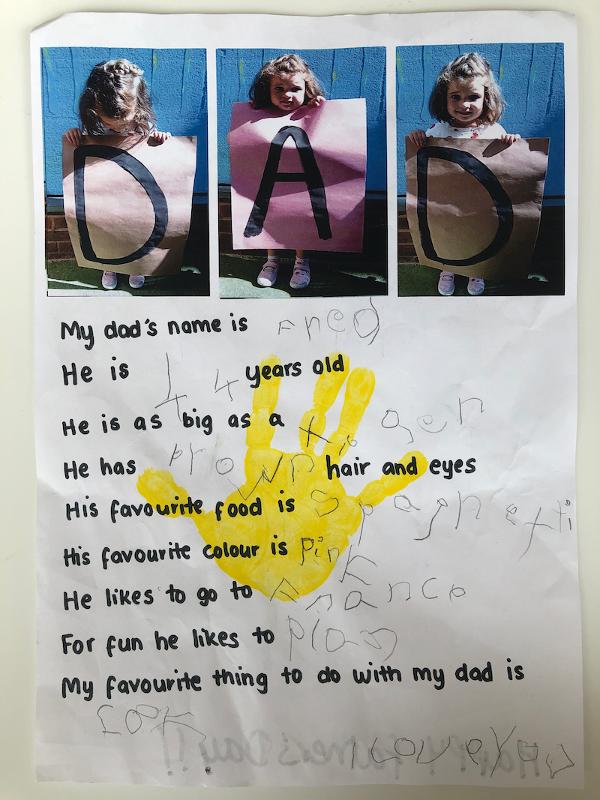 D A D
My dad's name is Fred
He is 44 years old
He is as big as a tigen
He has brown hair and eyes
His favourite food is Spaghetti
His favourite colour is Pink
He likes to go to France
For fun he likes to play
My favourite thing to do with my dad is
cook
I LOV YOU
HAPPY Father's Day!!